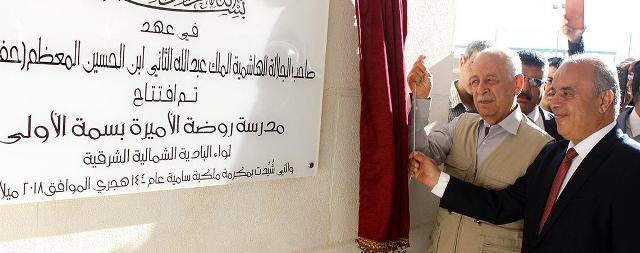 بسم الله
في عهد
صاحب الجلالة الهاشمية الملك عبدالله الثاني ابن الحسين المعظم (حف
تم افتتاح
مدرسة روضة الأميرة بسمة الأولى
لواء البادية الشمالية الشرقية
والتي شُيّدت بمكرمة ملكية سامية عام ١٤٤٠ هجري الموافق ٢٠١٨ ميلا